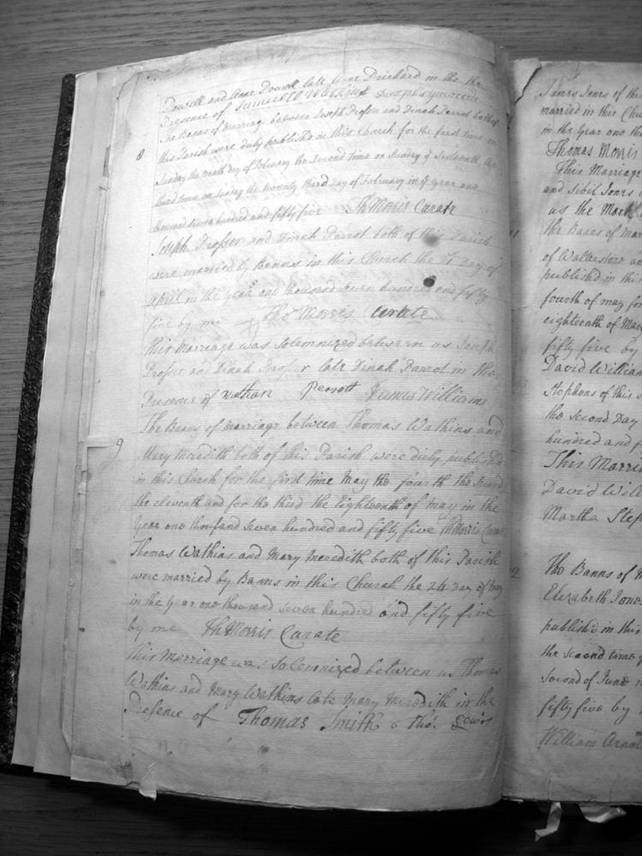 Powell and Anne Powell late Anne Prichard in the the
Presence of
The Banes of Marriage between Joseph Prosser and Dinah Parrot both of
8
this Parish were duly publishd in this Church for the first time on
Sunday the ninth day of February the Second time on Sunday ye Sixteenth the
third time on Sunday the twenty third day of February in ye year one
thousand seven hundred and fifty five Th Morris Curate
Joseph Prosser and Dinah Parrot both of this Parish
were married by Banns in this Church the day of
April in the year one thousand seven hundred and fifty
five by me Tho Morris Curate
This Marriage was Solemnized between us Joseph
Prosser and Dinah Prosser late Dinah Parrot in the
Presence of Nathan Perrott James Williams
The Banns of marriage between Thomas Watkins and
9
Mary Meredith both of this Parish were duly publish'd
in this Church for the first time May the fourth the Second
the eleventh and for the third the Eighteenth of may in the
Year one thousand Seven hundred and fifty five Th Morris Curate
Thomas Watkins and Mary Meredith both of this Parish
were married by Banns in this Church the 24 Day of May
in the Year one thousand Seven hundred and fifty five
by me Th Morris Curate
This Marriage was Solemnized between us Thomas
Watkins and Mary Watkins late Mary Meredith in the
Presence of Thomas Smith & Tho: Lewis
James Jones of th
married in this Chu
in the Year one tho
Thomas Morris
This Marriage
and Sibil Jones
us the Mark
the Banes of Mar
of Walterstone an
published in the
fourth of may
eighteenth of Ma
fifty five by
David William
Stephens of this
the Second Day
hundred and f
This Marria
David Will
Martha Step
The Banns of M
Elizabeth Jones
publish'd in this
the second time
Second of June
fifty five by
William